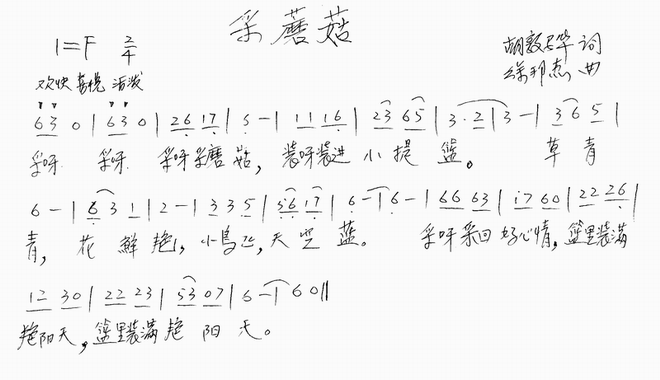 采蘑菇
1=F 2/4
胡敦骅 词
徐邦杰 曲
欢快 喜悦 活泼
63 0 | 63 0 | 26 17 | 5 - | 11 16 | 23 65 | 3·2 | 3 - | 36 5 |
采呀 采呀 采呀采蘑菇，装呀装进小提篮。 草青
6 - | 6 3 1 | 2 - | 3 3 5 | 56 17 | 6 - | 6 - | 66 63 | 17 60 | 22 26 |
青，花鲜艳，小鸟飞，天空蓝。 采呀采回好心情，篮里装满
12 30 | 22 23 | 53 07 | 6 - | 6 0 ‖
艳阳天，篮里装满艳阳天。